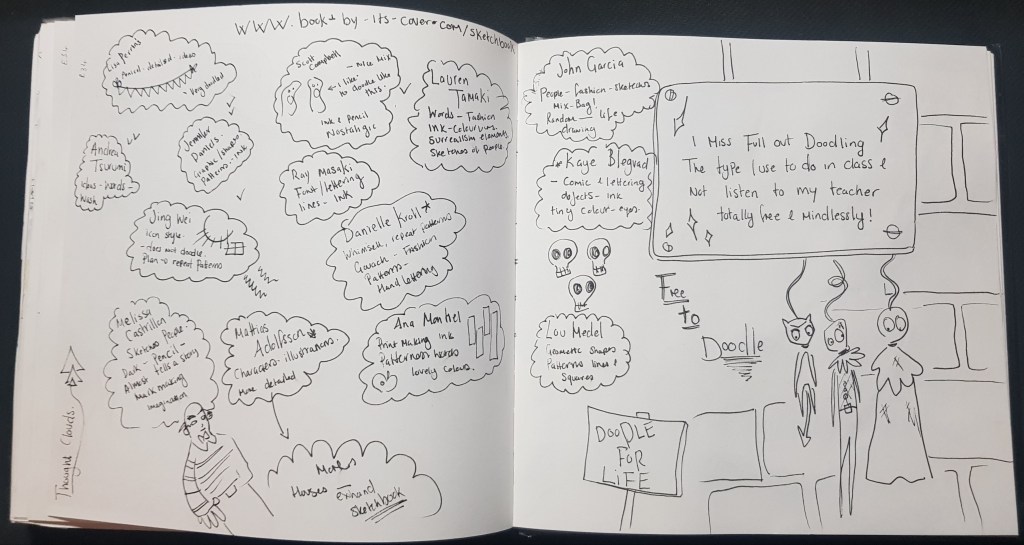 www.book-by-its-cover.com/sketchbook
Lisa Perrins
detailed ideas
Very detailed
Scott
Campbell
- nice mix
← I like
to doodle like
this.
Ink & pencil
Nostalgic
Lauren
Tamaki
Words - Fashion
Ink - Colourings
Surrealism elements
Sketches of people.
Andrea
Tsurumi
ideas - words -
wash
Jennifer
Daniels.
Graphic/
Patterns - Ink
Ray Masaki
Font/lettering
lines - Ink
Jing Wei
icon style.
- does not doodle.
Plan → repeat patterns
Danielle Kroll
Whimsell, repeat patterns
Gauach - Fasision
Patterns -
Hand lettering
Melissa
Castrillon
Sketches People
Dark - Pencil -
Almost tells a story
Mark making
imagination
Mattias
Adolfsson
Characters - illustrations.
More detailed
Ana Montiel
Print Making ink
Patterness
lovely colours.
Thought Clouds.
Horses -
Sketchbook
John Garcia
People - fashion - sketches
Mix-Bag!
Random - life
drawing
Kaye Blegvad
- Comic & lettering
objects - ink
tiny colour - eyes.
Lou Medel
Geometic Shapes
Patterns lines &
Squares
I Miss Full out Doodling
The type I use to do in class &
Not listen to my teacher
totally free & Mindlessly!
Free
to
Doodle
DOODLE
FOR
LIFE